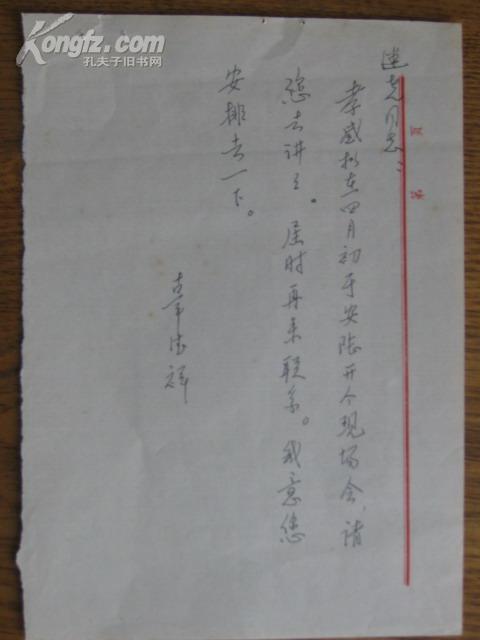 Kongfz.com
孔夫子旧书网
同志：
孝感拟在四月初于安陆开个现场会，请
您去讲々。届时再来联系。我意您
安排去一下。
辜德祥